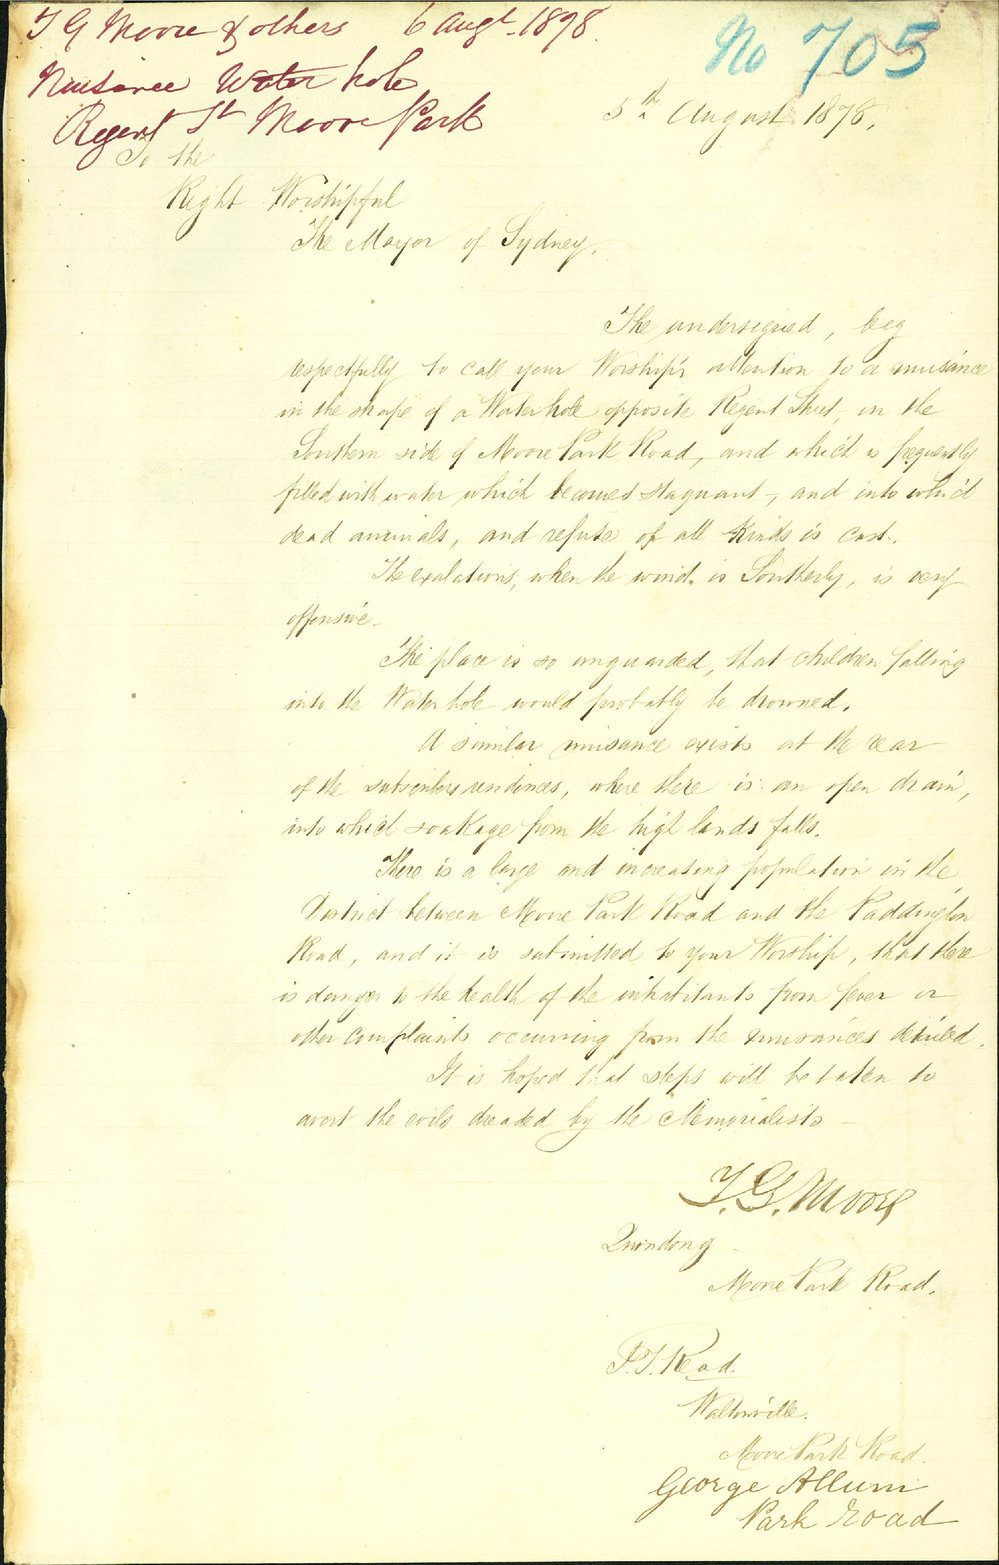 T G Moore & others 6 Augt. 1878.
No 705
Nuisance Water hole
Regent St Moore Park
5th August 1878.
To the
Right Worshipful
The Mayor of Sydney.
The undersigned, beg
respectfully to call your Worship's attention to a nuisance
in the shape of a Waterhole opposite Regent Street, on the
Southern side of Moore Park Road, and which is frequently
filled with water which becomes stagnant, and into which
dead animals, and refuse of all kinds is cast.
The exalations, when the wind is Southerly, is very
offensive.
The place is so unguarded, that children falling
into the Water hole would probably be drowned.
A similar nuisance exists at the rear
of the subscribers residences, where there is an open drain,
into which soakage from the high lands falls.
There is a large and increasing population in the
District between Moore Park Road and the Paddington
Road, and it is submitted to your Worship, that there
is danger to the health of the inhabitants from fever or
other complaints occurring from the nuisances detailed.
It is hoped that steps will be taken to
avert the evils dreaded by the Memorialists
T. G. Moore
Quondong
Moore Park Road.
P. T. Read.
Waltonville.
Moore Park Road.
George Allum
Park Road